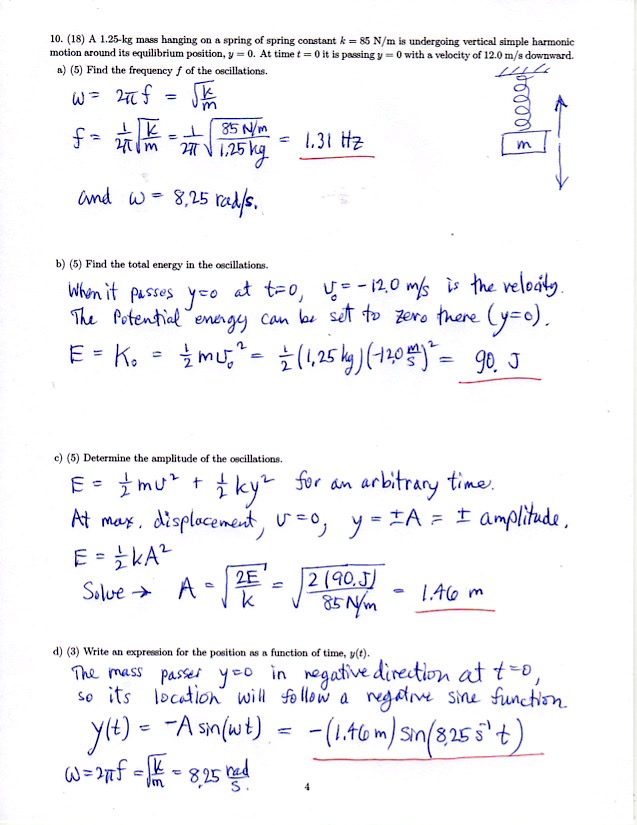 10. (18) A 1.25-kg mass hanging on a spring of spring constant k = 85 N/m is undergoing vertical simple harmonic
motion around its equilibrium position, y = 0. At time t = 0 it is passing y = 0 with a velocity of 12.0 m/s downward.
a) (5) Find the frequency f of the oscillations.
ω = 2πf = √(k/m)
f = 1/2π √(k/m) = 1/2π √(85 N/m / 1,25 kg) = 1.31 Hz
m
and ω = 8,25 rad/s.
b) (5) Find the total energy in the oscillations.
When it passes y=0 at t=0, v₀ = -12.0 m/s is the velocity.
The Potential energy can be set to zero there (y=0).
E = K₀ = ½ m v₀² = ½ (1,25 kg)(-12.0 m/s)² = 90. J
c) (5) Determine the amplitude of the oscillations.
E = ½ m v² + ½ k y² for an arbitrary time.
At max. displacement, v=0, y = ±A = ± amplitude.
E = ½ k A²
Solve → A = √(2E/k) = √(2(90. J) / 85 N/m) = 1.46 m
d) (3) Write an expression for the position as a function of time, y(t).
The mass passes y=0 in negative direction at t=0,
so its location will follow a negative sine function.
y(t) = -A sin(ωt) = -(1.46 m) sin(8,25 s⁻¹ t)
ω = 2πf = √(k/m) = 8,25 rad/s.
4